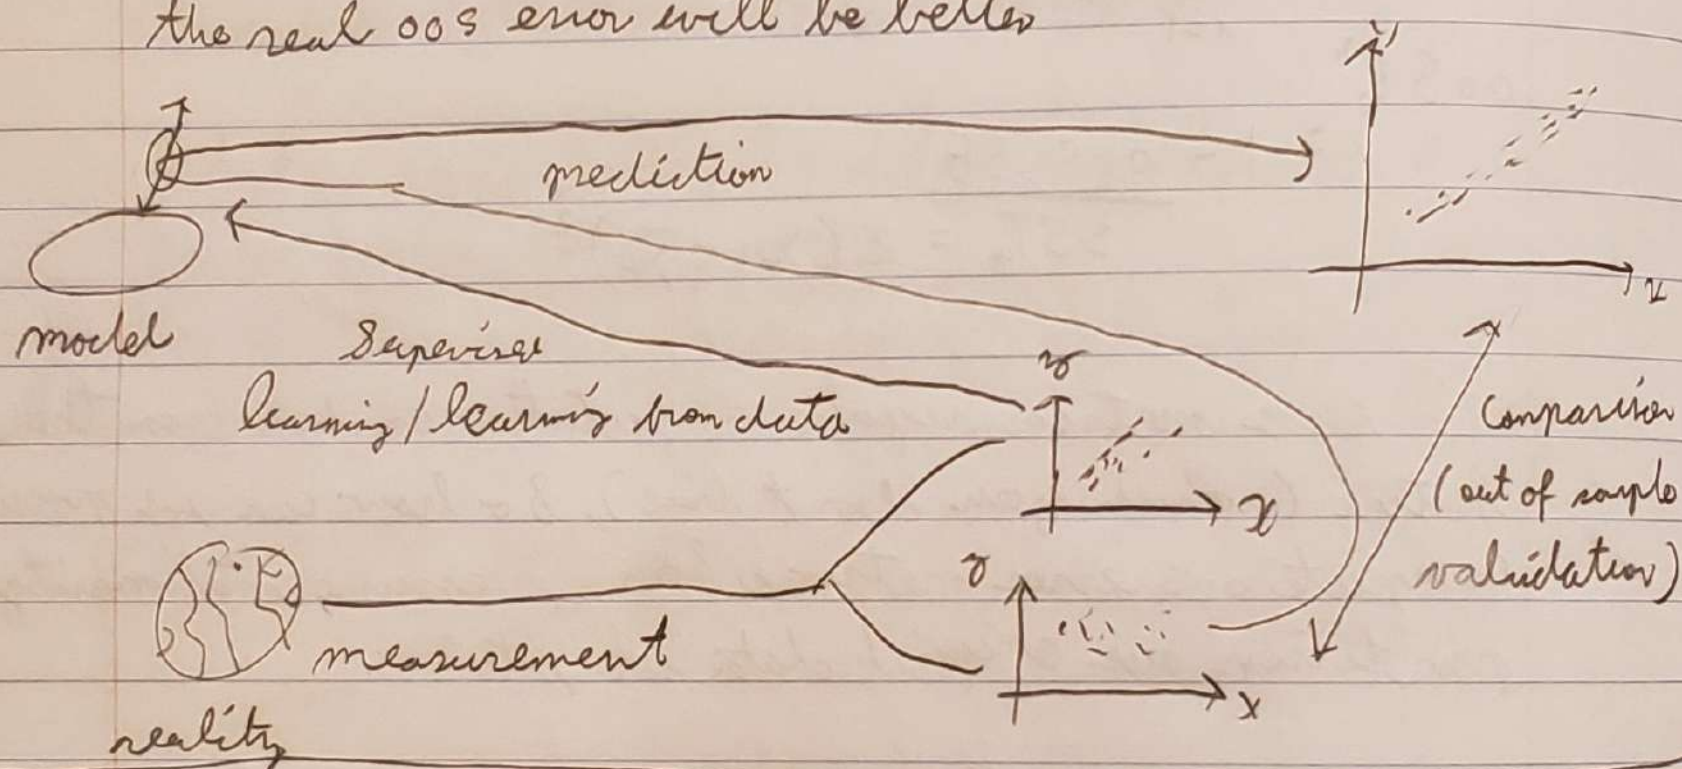 the real oos error will be better
y
prediction
x
model
Supervise
learning/learning from data
y
x
Comparison
(out of sample
validation)
measurement
y
x
reality